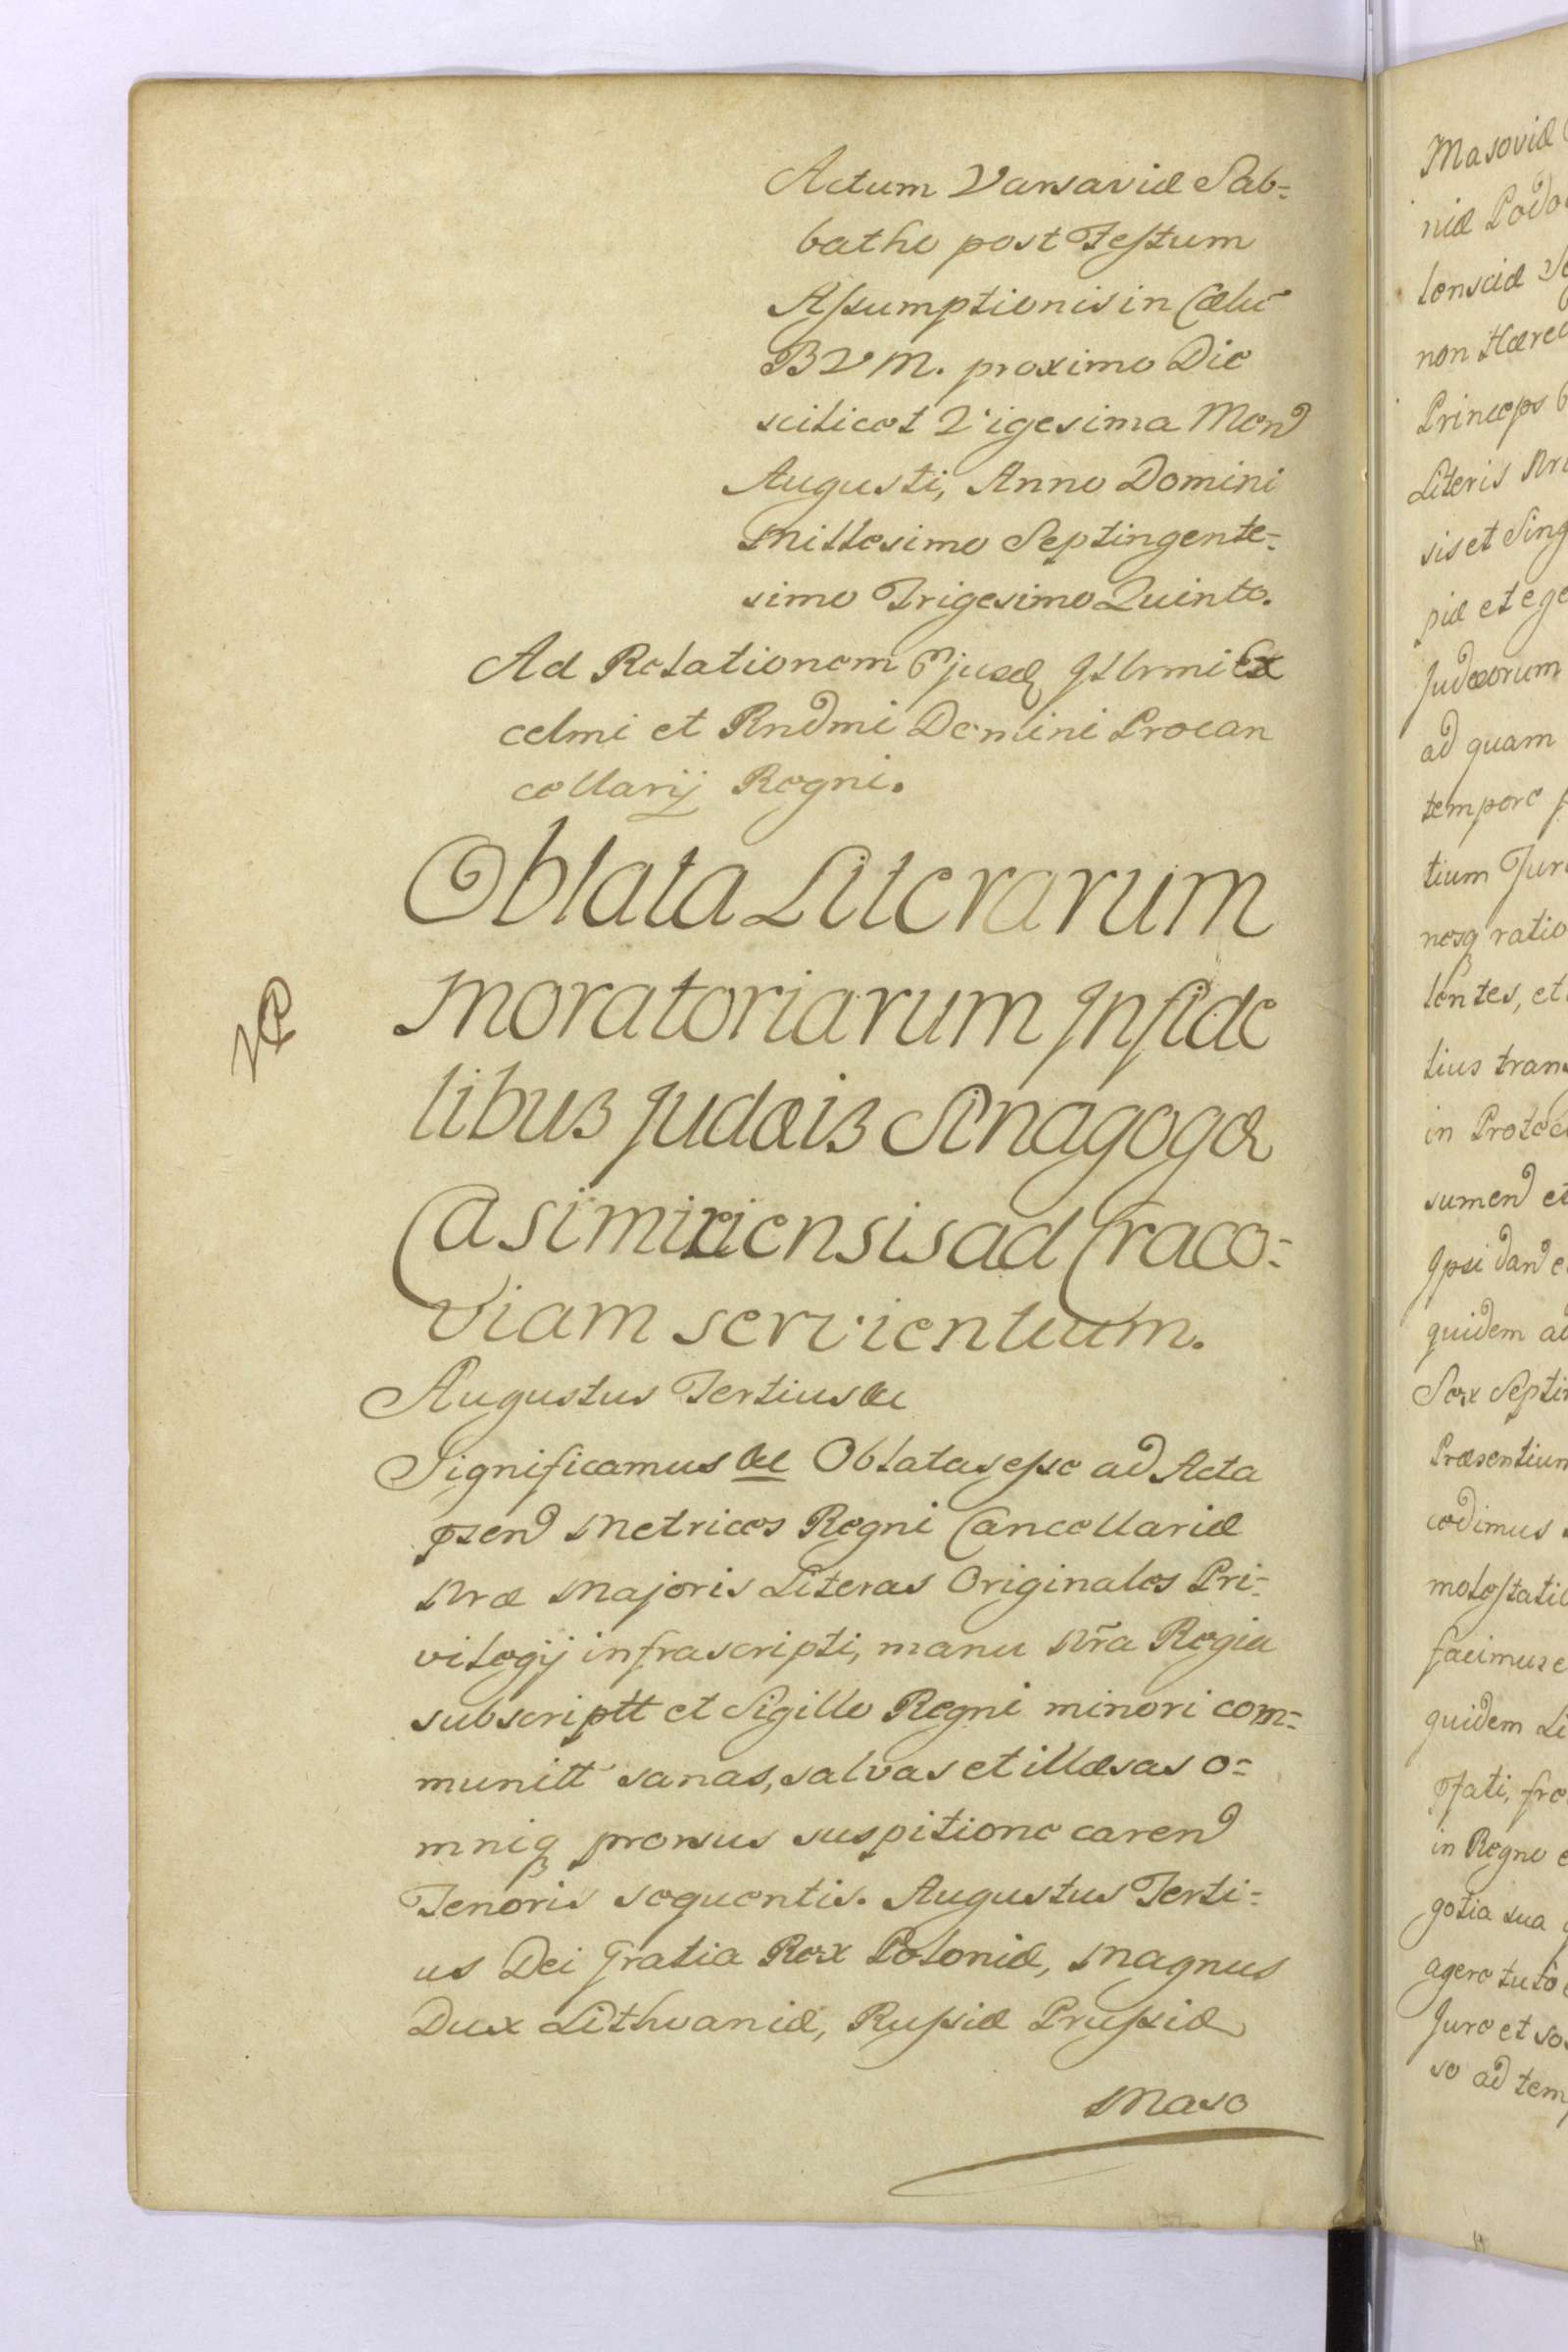 Actum Varsaviæ Sab=
batho post Festum
Assumptionis in Cælū
B V M. proximo Die
scilicet Vigesima Mens
Augusti, Anno Domini
Millesimo Septingente=
simo Trigesimo Quinto.
Ad Relationem Ejusdq Illrmi Ex
celmi et Rndmi Domini Procan
cellarij Regni.
Oblata Literarum
Moratoriarum Infide
libus Judæis Sinagogæ
Casimiriensis ad Craco=
viam servientium.
Augustus Tertius &c
Significamus &c Oblatas esse ad Acta
psen Metrices Regni Cancellariæ
Nræ Majoris Literas Originales Pri=
vilegij infrascripti, manu Nr̃a Regia
subscriptt et Sigillo Regni minori com=
munitt sanas, salvas et illæsas o=
mniq prorsus suspitione caren
Tenoris sequentis. Augustus Terti=
us Dei Gratia Rex Poloniæ, Magnus
Dux Lithvaniæ, Russiæ Prussiæ
Maso
Masoviæ
niæ Podo
lensciæ
non Hæred
Princeps
Literis Nri
sis et Sing
piæ et ege
Judæorum
ad quam
tempore
tium Jur
nesq ratio
lentes, et
tius trans
in Protoc
sumen et
Ipsi dan
quidem ad
Sex Septi
Præsentium
cedimus
molestatio
facimus
quidem Li
Pfati,
in Regno
gotia sua
agere tuto
Jure et
so ad tem